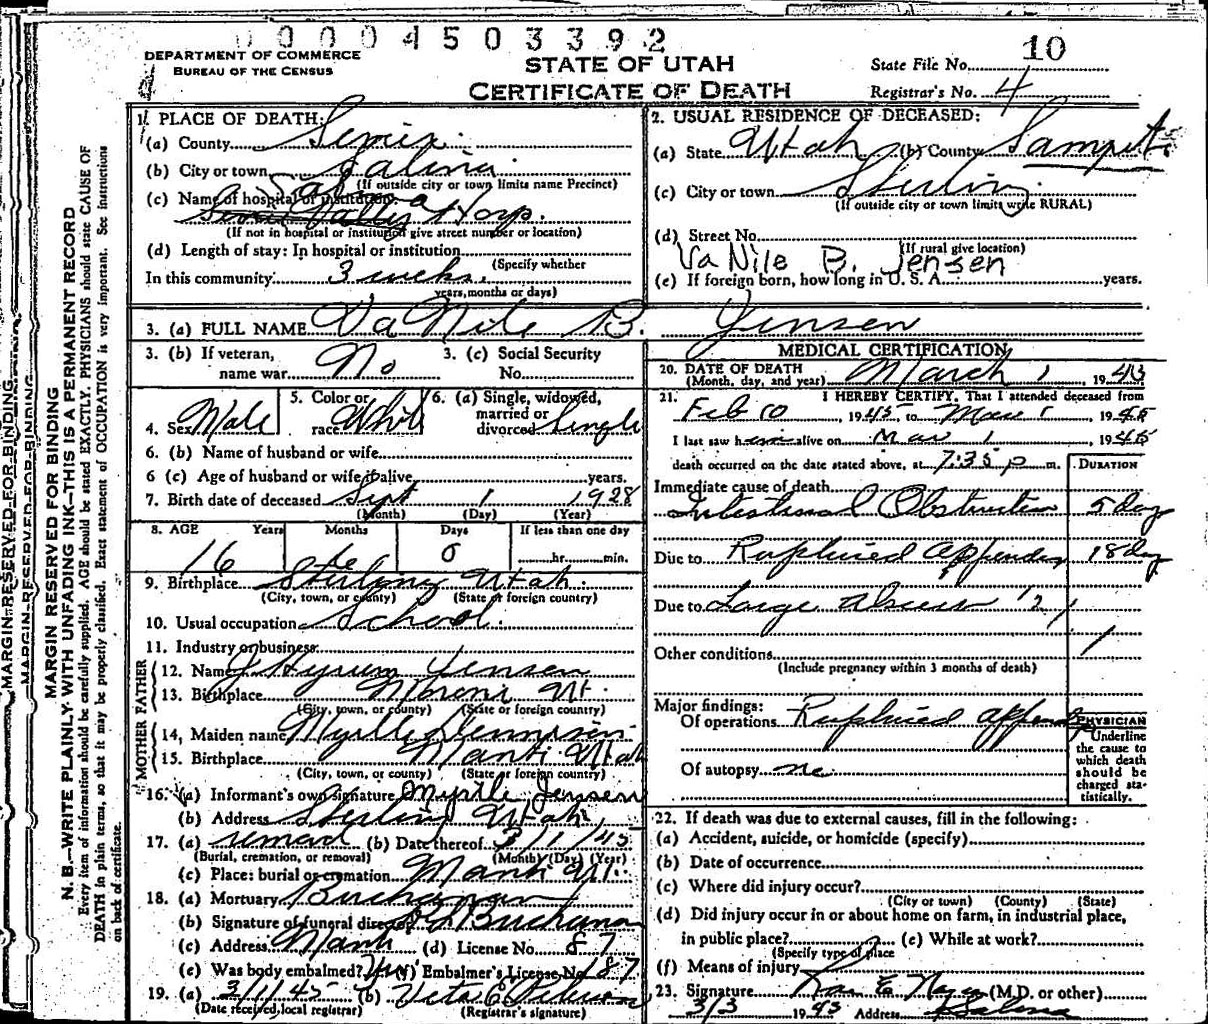 00004503392
DEPARTMENT OF COMMERCE
BUREAU OF THE CENSUS
STATE OF UTAH
CERTIFICATE OF DEATH
State File No. 10
Registrar's No. 4
1. PLACE OF DEATH:
(a) County Sevier
(b) City or town Salina
(If outside city or town limits name Precinct)
(c) Name of hospital or institution: Salina
Sevier Valley Hosp.
(If not in hospital or institution give street number or location)
(d) Length of stay: In hospital or institution
(Specify whether
In this community: 3 weeks.
years, months or days)
2. USUAL RESIDENCE OF DECEASED:
(a) State Utah (b) County Sanpete
(c) City or town Sterling
(If outside city or town limits write RURAL)
(d) Street No.
(If rural give location)
Va Nile B. Jensen
(e) If foreign born, how long in U. S. A. years.
3. (a) FULL NAME Va Nile B. Jensen
3. (b) If veteran, name war No
3. (c) Social Security No.
4. Sex Male
5. Color or race White
6. (a) Single, widowed, married or divorced Single
6. (b) Name of husband or wife
6 (c) Age of husband or wife if alive years.
7. Birth date of deceased Sept 1 1928
(Month) (Day) (Year)
8. AGE Years Months Days If less than one day
16 0 hr. min.
9. Birthplace Sterling Utah.
(City, town, or county) (State or foreign country)
10. Usual occupation School.
11. Industry or business:
FATHER
12. Name J Hyrum Jensen
13. Birthplace Moroni Ut.
(City, town, or county) (State or foreign country)
MOTHER
14. Maiden name Myrtle Dennison
15. Birthplace Manti Utah
(City, town, or county) (State or foreign country)
16. (a) Informant's own signature Myrtle Jensen
(b) Address Sterling Utah
17. (a) removal (b) Date thereof 3/1/45
(Burial, cremation, or removal) (Month) (Day) (Year)
(c) Place: burial or cremation Manti Ut.
18. (a) Mortuary Buchanan
(b) Signature of funeral director Buchanan
(c) Address Manti (d) License No. 87
(e) Was body embalmed? Yes (f) Embalmer's License No. 187
19. (a) 3/1/45 (b) Veta
(Date received, local registrar) (Registrar's signature)
MEDICAL CERTIFICATION
20. DATE OF DEATH
(Month, day, and year) March 1, 1945
21. I HEREBY CERTIFY, That I attended deceased from
Feb 10, 1945, to Mar 1, 1945
I last saw him alive on Mar 1, 1945
death occurred on the date stated above, at 7:35 p m.
DURATION
Immediate cause of death
Intestinal Obstruction 5 day
Due to Ruptured appendix 18 day
Due to Large abscess
Other conditions
(Include pregnancy within 3 months of death)
Major findings:
Of operations Ruptured append
Of autopsy no
PHYSICIAN
Underline
the cause to
which death
should be
charged sta-
tistically.
22. If death was due to external causes, fill in the following:
(a) Accident, suicide, or homicide (specify)
(b) Date of occurrence
(c) Where did injury occur?
(City or town) (County) (State)
(d) Did injury occur in or about home on farm, in industrial place,
in public place? (e) While at work?
(Specify type of place
(f) Means of injury
23. Signature (M.D. or other)
3/3 1945 Address Salina
MARGIN RESERVED FOR BINDING
MARGIN RESERVED FOR BINDING
MARGIN RESERVED FOR BINDING
N. B.—WRITE PLAINLY WITH UNFADING INK—THIS IS A PERMANENT RECORD
Every item of information should be carefully supplied. AGE should be stated EXACTLY. PHYSICIANS should state CAUSE OF
DEATH in plain terms, so that it may be properly classified. Exact statement of OCCUPATION is very important. See instructions
on back of certificate.